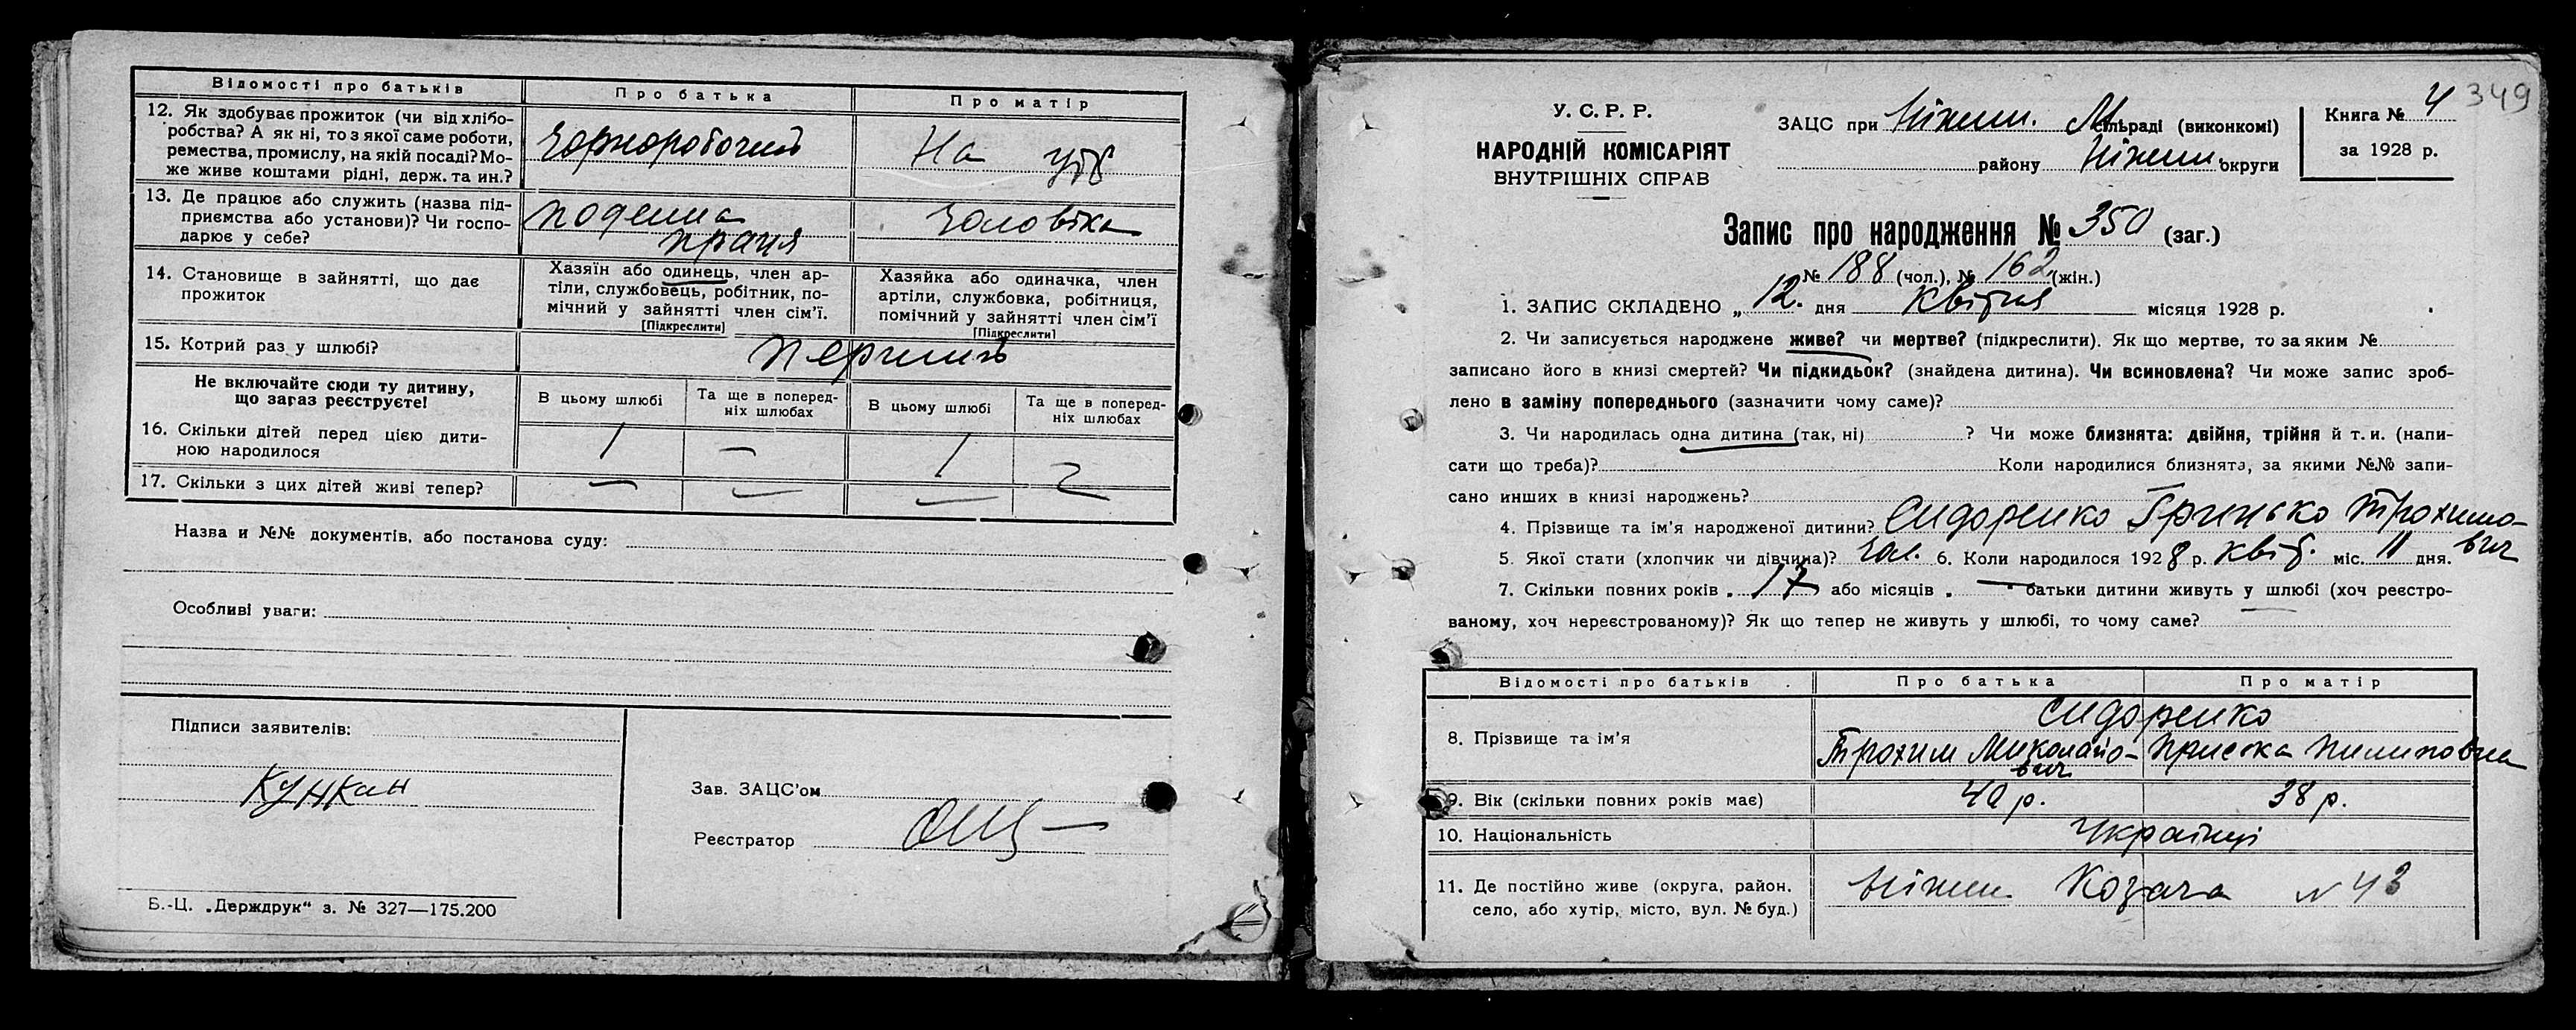 Відомості про батьків Про батька Про матір
12. Як здобуває прожиток (чи від хлібо-
робства? А як ні, то з якої саме роботи,
ремества, промислу, на якій посаді? Мо-
же живе коштами рідні, держ. та ин.?
Чорноробочий На утр
13. Де працює або служить (назва під-
приємства або установи)? Чи госпо-
дарює у себе?
поденна
праця
Чоловіка
14. Становище в зайнятті, що дає
прожиток
Хазяїн або одинець, член ар-
тіли, службовець, робітник, по-
мічний у зайнятті член сім'ї.
[Підкреслити]
Хазяйка або одиначка, член
артіли, службовка, робітниця,
помічний у зайнятті член сім'ї
[Підкреслити]
15. Котрий раз у шлюбі? перший
Не включайте сюди ту дитину,
що загаз реєструєте!
В цьому шлюбі
Та ще в поперед-
ніх шлюбах
В цьому шлюбі
Та ще в поперед-
ніх шлюбах
16. Скільки дітей перед цією дити-
ною народилося
1 — 1
17. Скільки з цих дітей живі тепер? — — —
Назва и №№ документів, або постанова суду:
Особливі уваги:
Підписи заявителів:
Зав. ЗАЦС'ом
Реєстратор
Б.-Ц. „Держдрук“ з. № 327—175.200
349
У. С. Р. Р.
НАРОДНІЙ КОМІСАРІЯТ
ВНУТРІШНІХ СПРАВ
ЗАЦС при Ніжин. М сільраді (виконкомі)
району Ніжин. округи
Книга № 4
за 1928 р.
Запис про народження № 350 (заг.)
№ 188 (чол.), № 162 (жін.)
1. ЗАПИС СКЛАДЕНО „ 12. дня Квітня місяця 1928 р.
2. Чи записується народжене живе? чи мертве? (підкреслити). Як що мертве, то за яким №
записано його в книзі смертей? Чи підкидьок? (знайдена дитина). Чи всиновлена? Чи може запис зроб-
лено в заміну попереднього (зазначити чому саме)?
3. Чи народилась одна дитина (так, ні) ? Чи може близнята: двійня, трійня й т. и. (напи-
сати що треба)? Коли народилися близнята, за якими №№ запи-
сано инших в книзі народжень?
4. Прізвище та ім'я народженої дитини? Сидоренко Гринько Трохимо-
вич
5. Якої стати (хлопчик чи дівчина)? чол. 6. Коли народилося 1928 р. квіт. міс. 11 дня.
7. Скільки повних років 17 або місяців — батьки дитини живуть у шлюбі (хоч реєстро-
ваному, хоч нереєстрованому)? Як що тепер не живуть у шлюбі, то чому саме?
Відомості про батьків Про батька Про матір
8. Прізвище та ім'я
Сидоренко
Трохим Миколайо-
вич
Приська Пилиповна
9. Вік (скільки повних років має) 40 р. 38 р.
10. Національність Українці
11. Де постійно живе (округа, район.
село, або хутір, місто, вул. № буд.)
Ніжин. Козача № 43